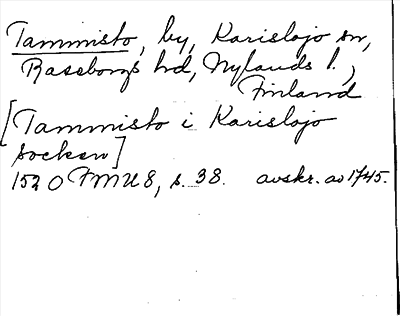 Tammisto, by, Karislojo sn,
Raseborgs hd, Nylands l.,
Finland
[Tammisto i Karislojo
socken]
1520 FMU 8, s. 38. avskr. av 1745.